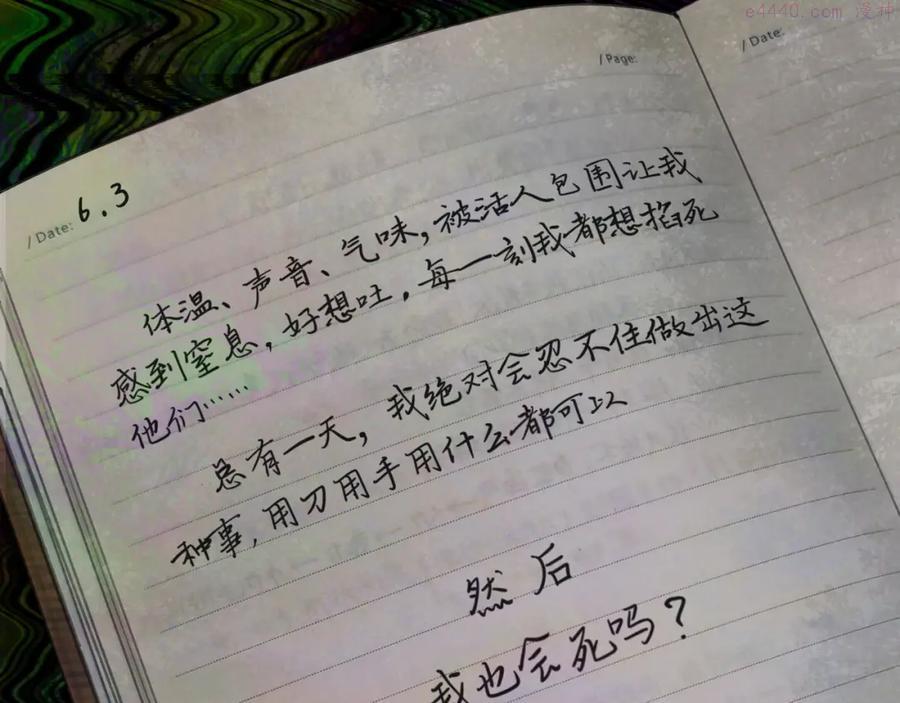 e4440.com 漫神
/ Page:
/ Date:
/ Date: 6.3
体温、声音、气味,被活人包围让我
感到窒息,好想吐,每一刻我都想掐死
他们……
总有一天,我绝对会忍不住做出这
种事,用刀用手用什么都可以
然后
我也会死吗?